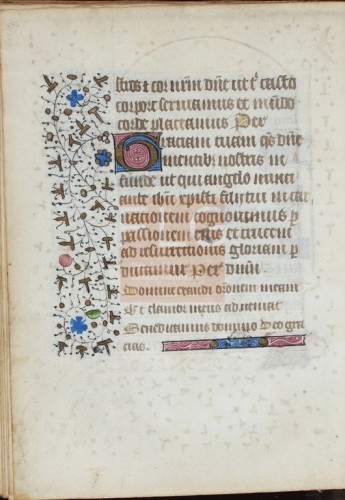 stros & cor nrm dne ut t' casto
corpore seruiamus et mundo
corde placeamus Per
Graciam tuam qs dne
mentibz nostris in
funde ut qui angelo nunci
ante ihu xpisti filij tui incar
nacionem cognouimus p
passionem eius et crucem
ad resurrectionis gloriam p
ducamur Per dnm.
Domine exaudi oronem meam
Et clamor meus ad te veniat
Benedicamus domino Deo gra
cias.